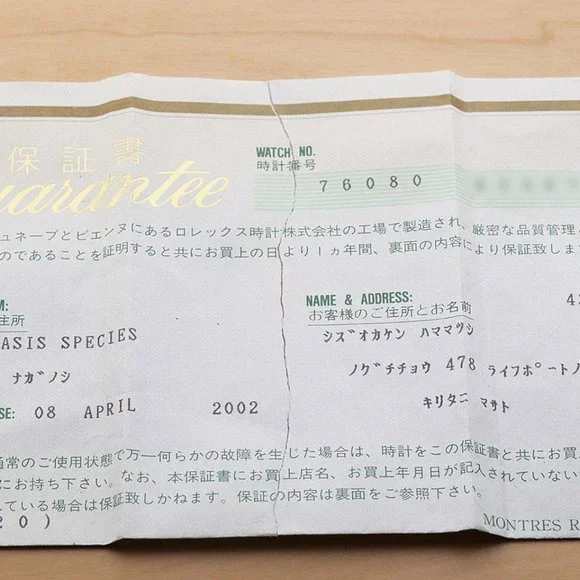 保証書
Guarantee
WATCH NO.
時計番号
76080
ュネーブとビエンヌにあるロレックス時計株式会社の工場で製造され、厳密な品質管理
のであることを証明すると共にお買上の日より1ヵ年間、裏面の内容により保証致しま
M:
住所
ASIS SPECIES
ナガノシ
SE: 08 APRIL 2002
NAME & ADDRESS:
お客様のご住所とお名前
43
シズオカケン ハママツシ
ノグチチョウ 478 ライフポートノ
キリタニ マサト
通常のご使用状態で万一何らかの故障を生じた場合は、時計をこの保証書と共にお買上
にお持ち下さい。なお、本保証書にお買上店名、お買上年月日が記入されていない
している場合は保証致しかねます。保証の内容は裏面をご参照下さい。
20)
MONTRES R